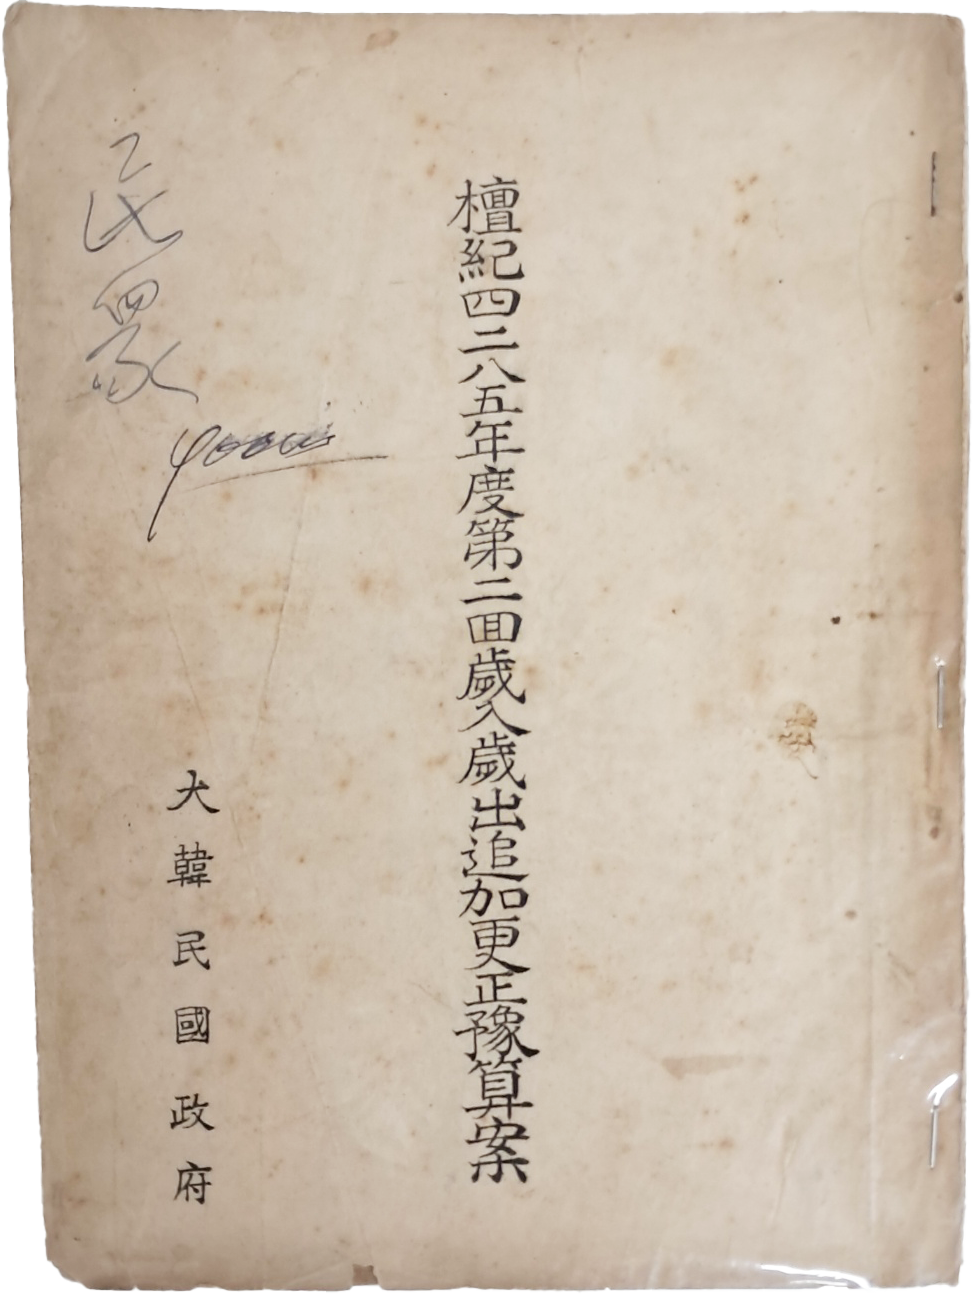 檀紀四二八五年度第二回歲入歲出追加更正豫算案
大韓民國政府
民眾